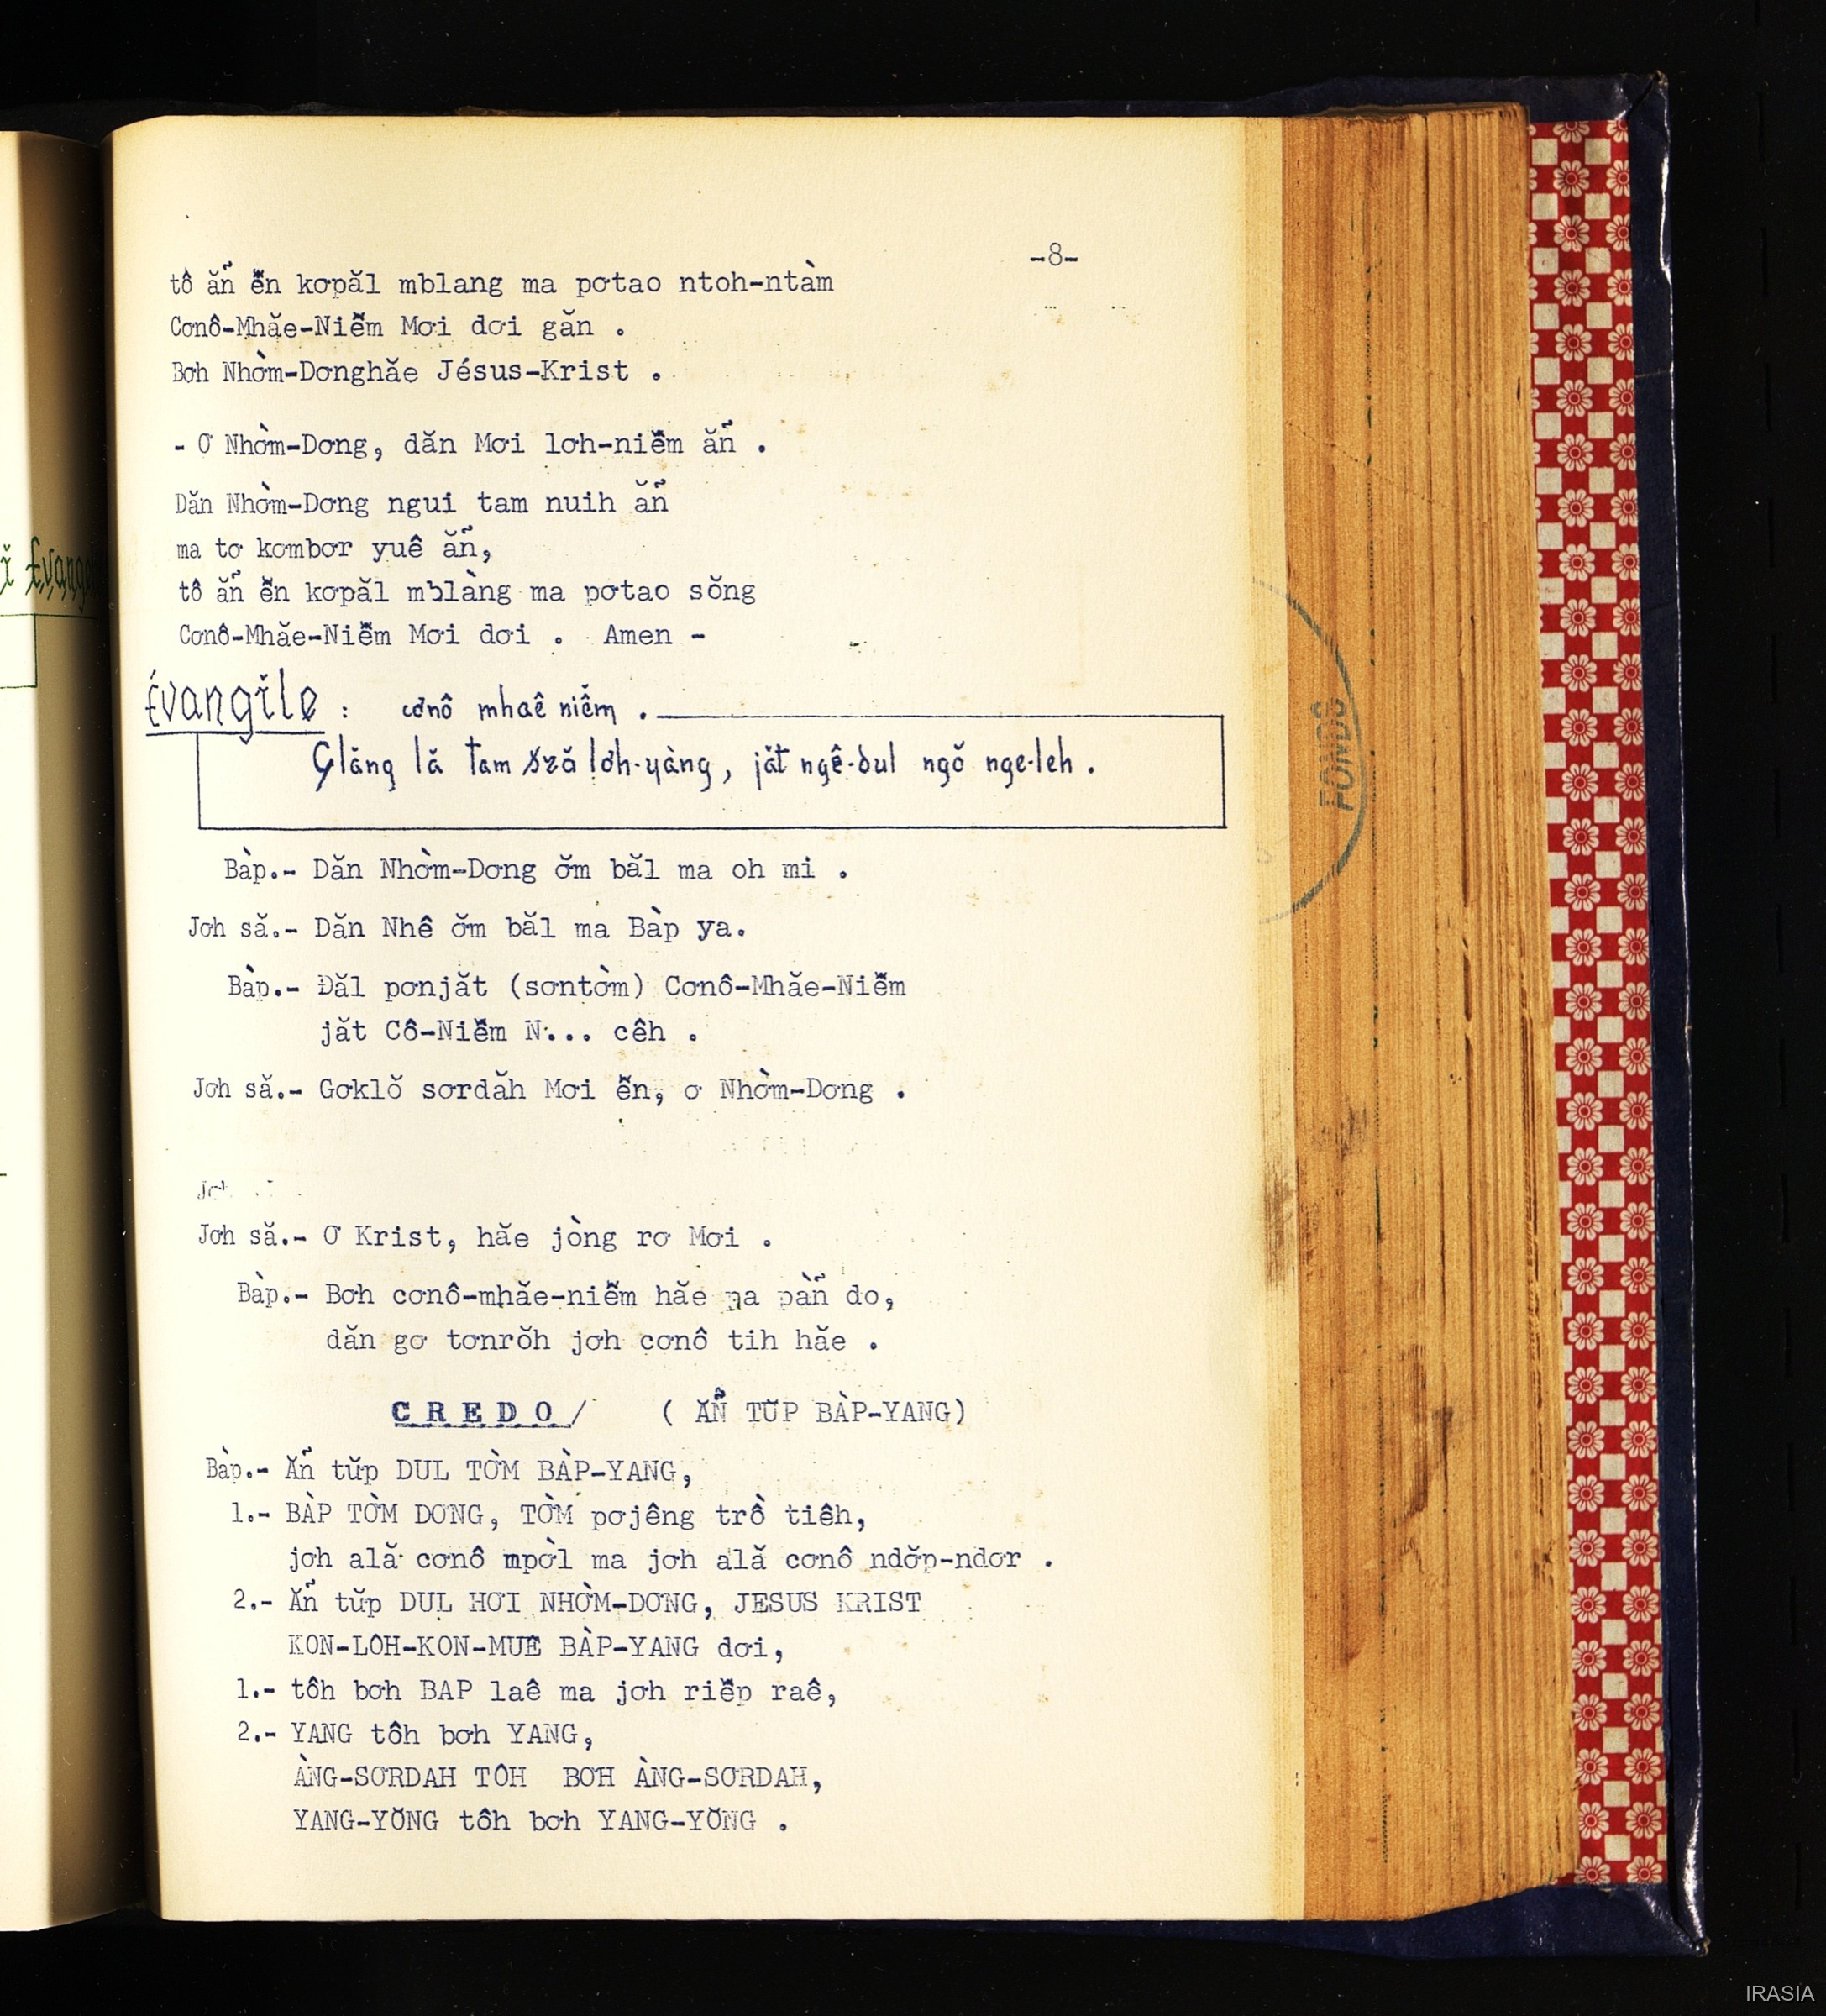 -8-
tô ăñ ẽn kơpăl mblang ma pơtao ntoh-ntàm
Cơnô-Mhăe-Niẽm Mơi dơi găn .
Bơh Nhờm-Dơnghăe Jésus-Krist .
- Ơ Nhờm-Dơng, dăn Mơi lơh-niẽm ăñ .
Dăn Nhờm-Dơng ngui tam nuih ăñ
ma tơ kơmbơr yuê ăñ,
tô ăñ ẽn kơpăl mblàng ma pơtao sŏng
Cơnô-Mhăe-Niẽm Mơi dơi . Amen -
Évangile : cơnô mhaê niễm .
Glăng lă tam sră lơh-yàng, jăt ngê-dul ngŏ nge-leh .
Bàp.- Dăn Nhờm-Dơng ơ̆m băl ma oh mi .
Jơh să.- Dăn Nhê ơ̆m băl ma Bàp ya.
Bàp.- Đăl pơnjăt (sơntờm) Cơnô-Mhăe-Niẽm
jăt Cô-Niẽm N... cêh .
Jơh să.- Gơklŏ sơrdăh Mơi ẽn, ơ Nhờm-Dơng .
Jơh să.- Ơ Krist, hăe jòng rơ Mơi .
Bàp.- Bơh cơnô-mhăe-niẽm hăe pa pàñ do,
dăn gơ tơnrŏh jơh cơnô tih hăe .
CREDO/ ( ĂÑ TŬP BÀP-YANG)
Bàp.- Ăñ tŭp DUL TỜM BÀP-YANG,
1.- BÀP TỜM DƠNG, TỜM pơjêng trồ tiêh,
jơh ală cơnô mpờl ma jơh ală cơnô ndơ̆p-ndơr .
2.- Ăñ tŭp DUL HƠI NHỜM-DƠNG, JESUS KRIST
KON-LÔH-KON-MUÊ BÀP-YANG dơi,
1.- tôh bơh BAP laê ma jơh riẽp raê,
2.- YANG tôh bơh YANG,
ÀNG-SƠRDAH TÔH BƠH ÀNG-SƠRDAH,
YANG-YŎNG tôh bơh YANG-YŎNG .
FONDS
IRASIA